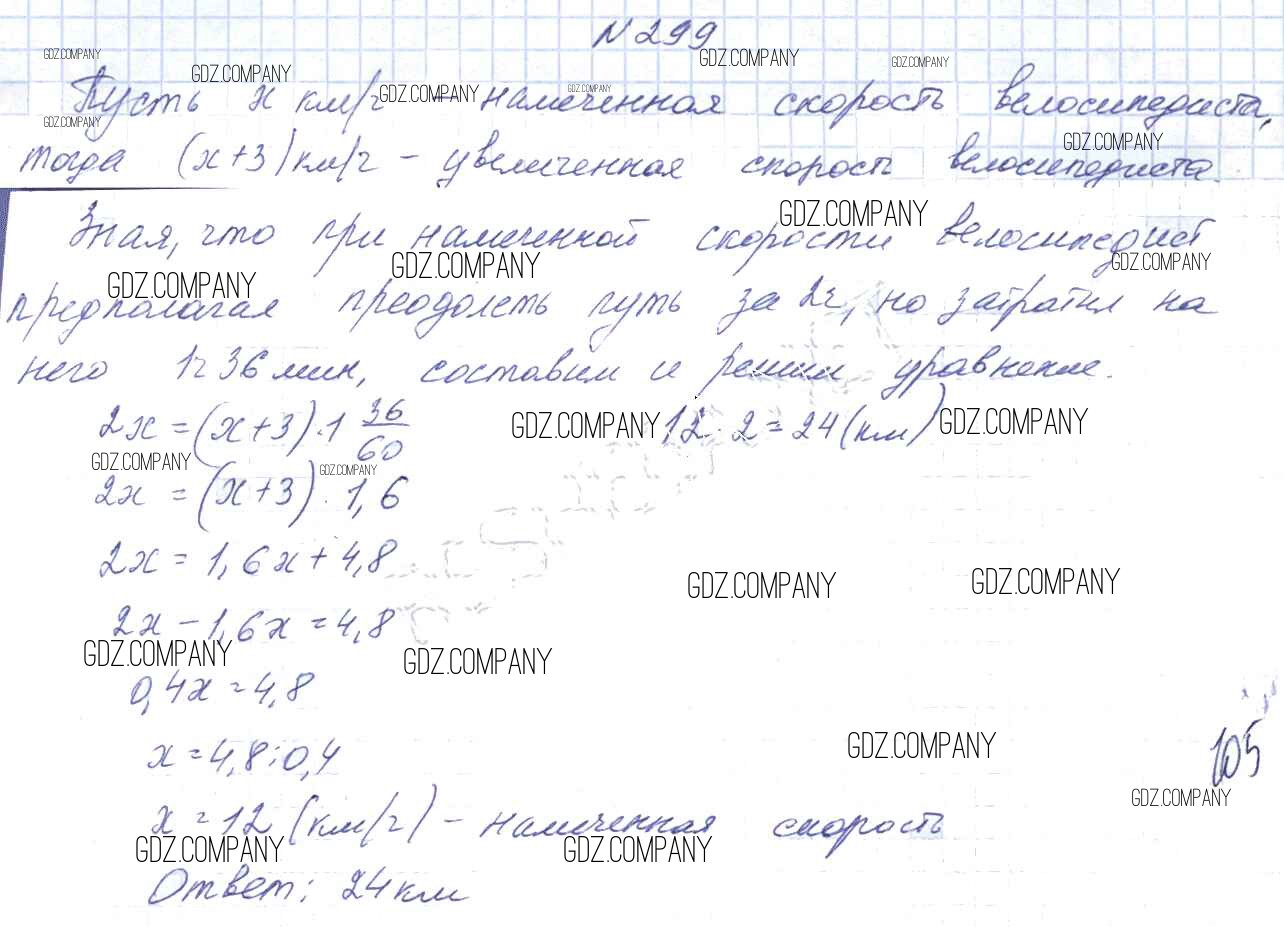 № 299
GDZ.COMPANY
GDZ.COMPANY GDZ.COMPANY GDZ.COMPANY
Пусть x км/ч – намеченная скорость велосипедиста,
GDZ.COMPANY GDZ.COMPANY
GDZ.COMPANY GDZ.COMPANY
тогда (x+3) км/ч – увеличенная скорость велосипедиста.
GDZ.COMPANY
Зная, что при намеченной скорости велосипедист
GDZ.COMPANY GDZ.COMPANY GDZ.COMPANY
предполагал преодолеть путь за 2ч, но затратил на
него 1ч 36 мин, составим и решим уравнение.
2x = (x+3) · 1 36/60
GDZ.COMPANY 12 · 2 = 24 (км) GDZ.COMPANY
GDZ.COMPANY GDZ.COMPANY
2x = (x+3) · 1,6
2x = 1,6x + 4,8
GDZ.COMPANY GDZ.COMPANY
2x – 1,6x = 4,8
GDZ.COMPANY GDZ.COMPANY
0,4x = 4,8
x = 4,8 : 0,4
GDZ.COMPANY
105
GDZ.COMPANY
x = 12 (км/ч) – намеченная скорость
GDZ.COMPANY GDZ.COMPANY
Ответ: 24 км